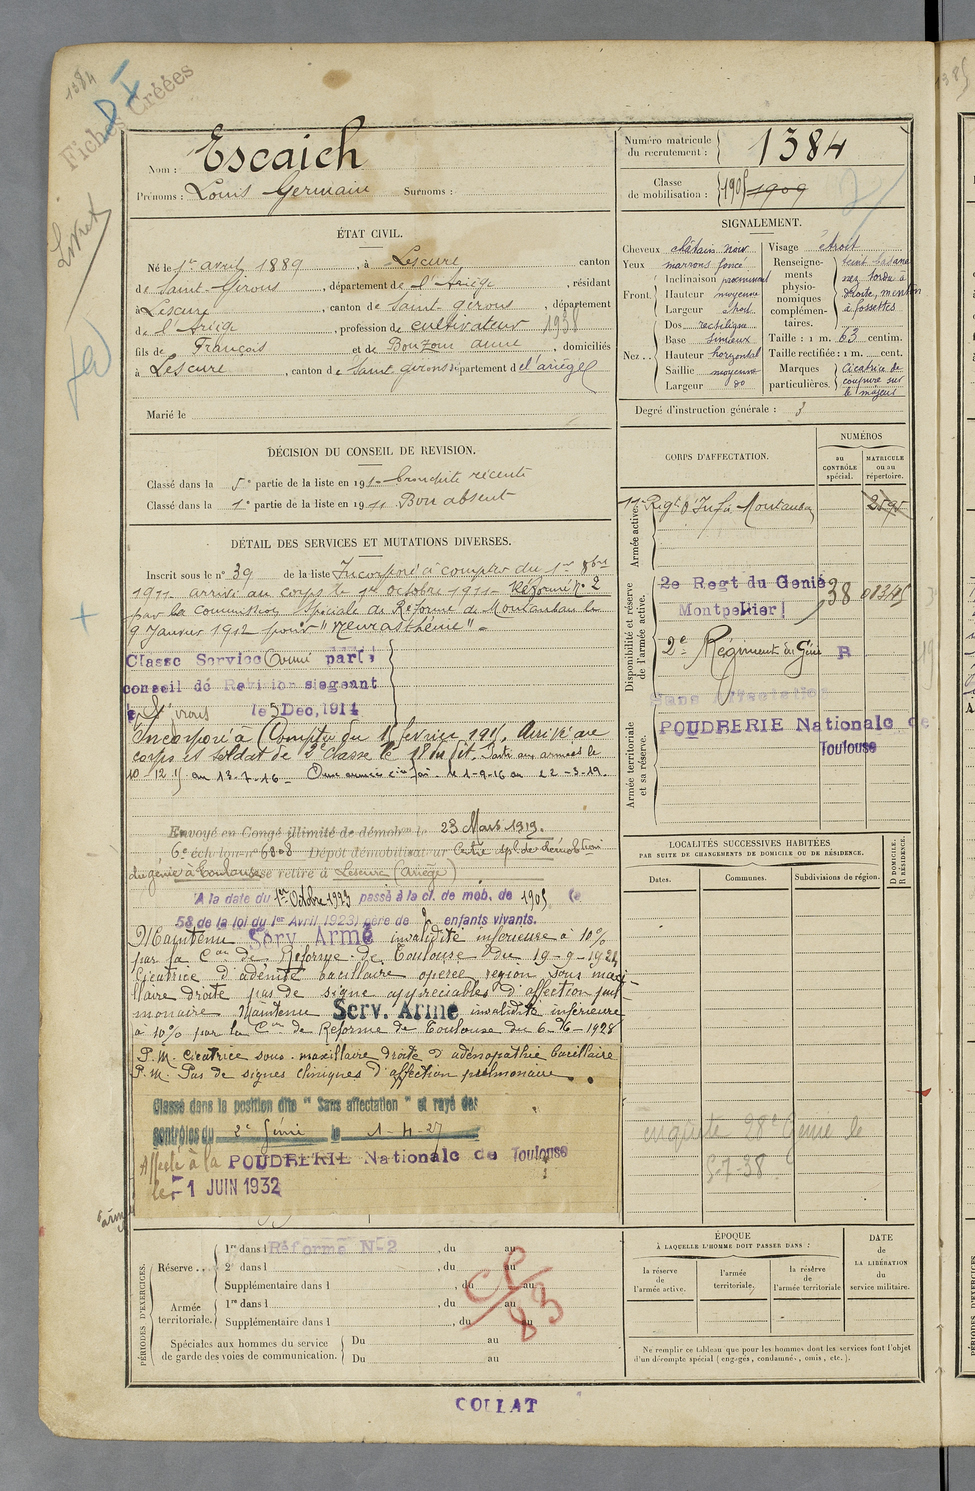 1384
Fiches Créées
Nom : Escaich
Prénoms : Louis Germain Surnoms :
ÉTAT CIVIL.
Né le 1er avril 1889, à Lescure canton
de Saint-Girons, département de l'Ariège, résidant
à Lescure, canton de Saint Girons, département
de l'Ariège, profession de cultivateur 1938
fils de François et de Bouzom anne domiciliés
à Lescure, canton de Saint girons département de l'ariège
Marié le
DÉCISION DU CONSEIL DE REVISION.
Classé dans la 5e partie de la liste en 191 Bronchite récente
Classé dans la 1e partie de la liste en 1911 Bon absent
DÉTAIL DES SERVICES ET MUTATIONS DIVERSES.
Inscrit sous le no 39 de la liste Incorporé à compter du 1er 8bre
1911 arrivé au corps le 1er octobre 1911 - Réformé no 2
par la commission spéciale de Réforme de Montauban le
9 Janvier 1912 pour "Neurasthénie" -
Classe Service Armé part;
conseil de Revision siegeant
à St Girons le 5 Dec, 1914
Incorporé à Compter du février 191. Arrivé au
corps et soldat de 2e classe le 18 du dit. Parti aux armées le
10-12-15 au 13-7-16 - du 1-9-16 au 22-3-19.
Envoyé en Congé illimité de démobon le 23 Mars 1919.
6e échelon no 6808 Dépôt démobilisateur Centre spl. de démobilion
du génie à Toulouse se retire à Lescure (Ariège)
A la date du 1er Octobre 1923 passé à la cl. de mob. de 1905
58 de la loi du 1er Avril 1923) père de 2 enfants vivants.
Maintenu Serv Armé invalidité inférieure à 10%
par la Con de Réforme de Toulouse du 19-9-1924
Cicatrice d'adénite bacillaire opérée région sous maxi-
llaire droite pas de signe appréciables d'affection pul-
monaire Maintenu Serv. Armé invalidité inférieure
à 10% par la Con de Réforme de Toulouse du 6-6-1928
P.M. Cicatrice sous-maxillaire droite d'adénopathie bacillaire
P.M. Pas de signes cliniques d'affection pulmonaire.
Classé dans la position dite " Sans affectation " et rayé des
contrôles du 2e Génie le 1-4-27
Affecté à la POUDRERIE Nationale de Toulouse
le 1 JUIN 1932
PÉRIODES D'EXERCICES.
Réserve... 1re dans l Réformé N-2, du au
2e dans l , du au
Supplémentaire dans l , du au
Armée territoriale. 1re dans l , du au
Supplémentaire dans l , du au
Spéciales aux hommes du service
de garde des voies de communication. Du au
Du au
COLLAT
Numéro matricule
du recrutement : 1384
Classe
de mobilisation : 1905 1909
SIGNALEMENT.
Cheveux châtain noir
Yeux marrons foncé
Front. Inclinaison proéminent
Hauteur moyenne
Largeur
Nez .. Dos rectiligne
Base sinueux
Hauteur horizontal
Saillie moyenne
Largeur do
Visage étroit
Renseignements physionomiques complémentaires. teint basané
nez tordu à
droite, menton
à fossettes
Taille : 1 m. 63 centim.
Taille rectifiée : 1 m. cent.
Marques particulières. Cicatrice de
coupure sur
le majeur
Degré d'instruction générale : 3
CORPS D'AFFECTATION.
NUMÉROS
au CONTRÔLE spécial.
MATRICULE ou au répertoire.
Armée active.
11e Rigt d'Infie Montauban 2595
Disponibilité et réserve de l'armée active.
2e Regt du Genie 38 01345
Montpellier
2e Régiment de Génie R
Sans affectation
Armée territoriale et sa réserve.
POUDRERIE Nationale de
Toulouse
LOCALITÉS SUCCESSIVES HABITÉES
PAR SUITE DE CHANGEMENTS DE DOMICILE OU DE RÉSIDENCE.
Dates. Communes. Subdivisions de région. D DOMICILE. R RÉSIDENCE.
enquête 28e Génie le
5-7-38
ÉPOQUE
À LAQUELLE L'HOMME DOIT PASSER DANS :
la réserve de l'armée active.
l'armée territoriale.
la réserve de l'armée territoriale
DATE de LA LIBÉRATION du service militaire.
Ne remplir ce tableau que pour les hommes dont les services font l'objet
d'un décompte spécial (engagés, condamnés, omis, etc.).